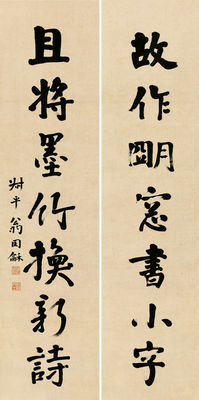 故作朙窓書小字
且將墨竹換新詩
尗平翁同龢